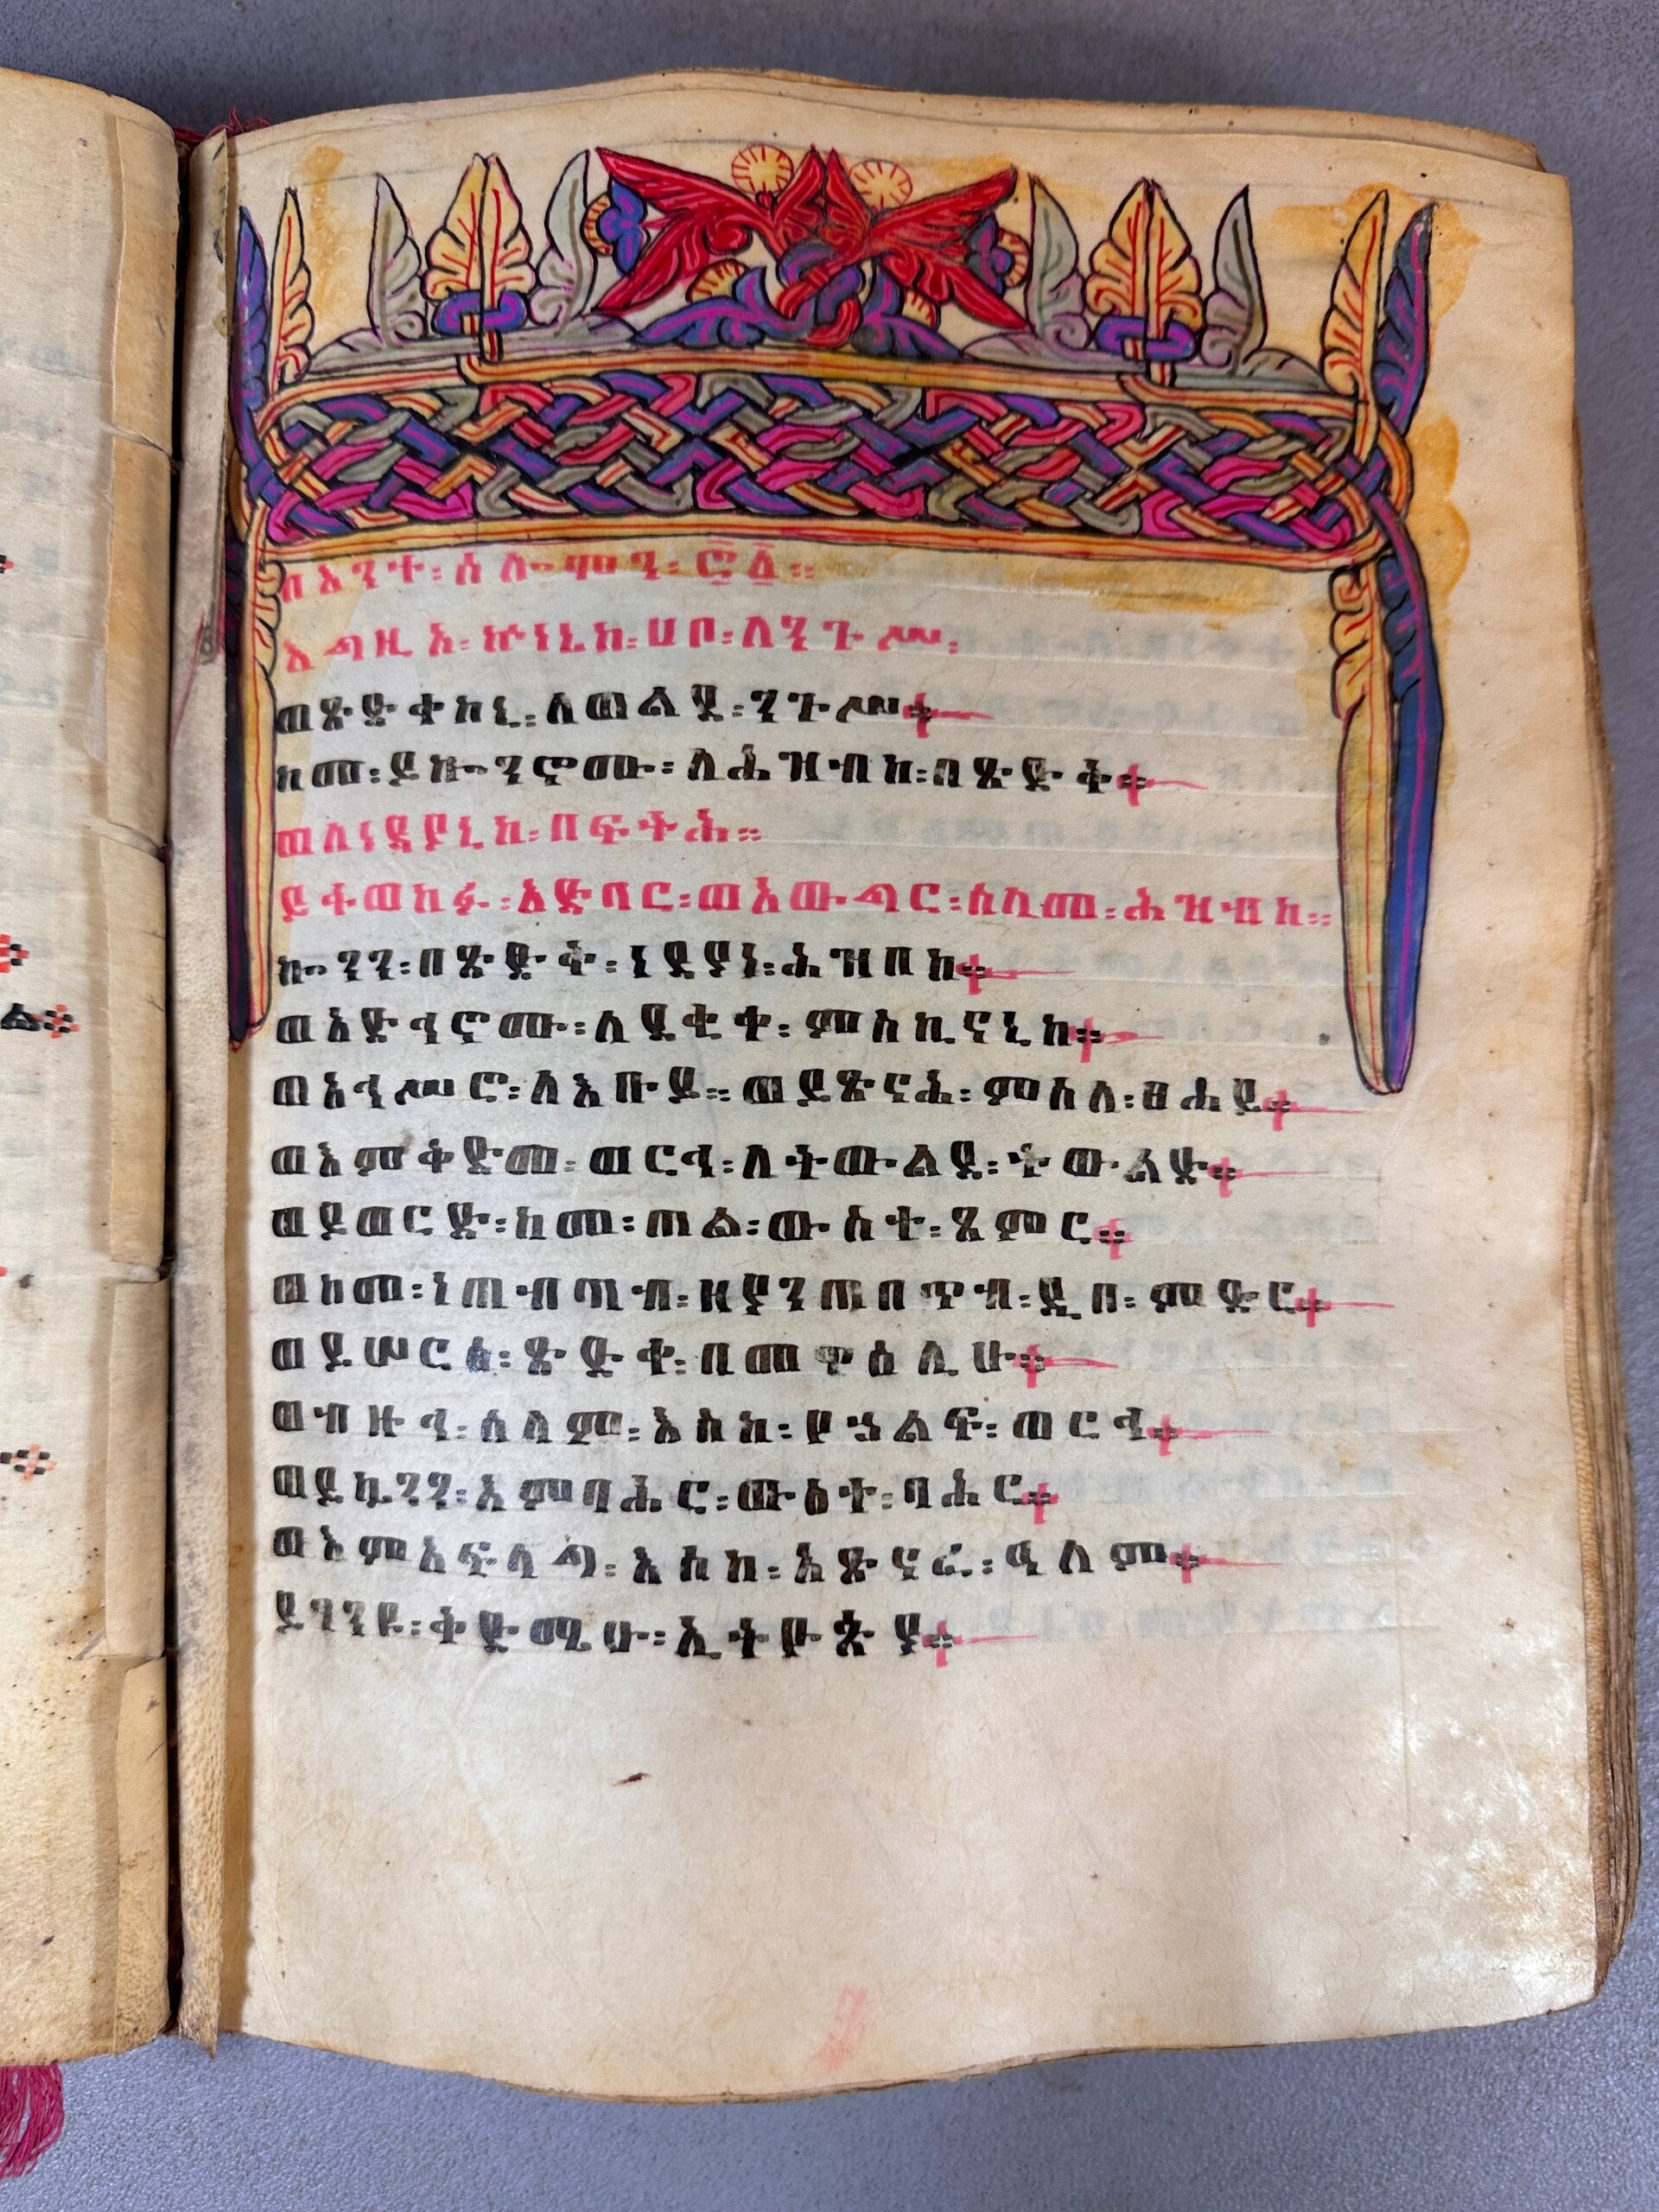 በእንተ፡ሰሎሞን፡፸፩።
እግዚኦ፡ኵነኔከ፡ሀቦ፡ለንጉሥ፡
ወጽድቀከኒ፡ለወልደ፡ንጉሥ።
ከመ፡ይኰንኖሙ፡ለሕዝብከ፡በጽድቅ።
ወለነዳያኒከ፡በፍትሕ።
ይትወከፉ፡አድባር፡ወአውግር፡ሰላመ፡ሕዝብከ።
ኰንን፡በጽድቅ፡ነዳያነ፡ሕዝብከ።
ወአድኅኖሙ፡ለደቂቀ፡ምስኪናኒከ።
ወአኅሥሮ፡ለእቡይ። ወይጽናሕ፡ምስለ፡ፀሐይ።
ወእምቅድመ፡ወርኅ፡ለትውልደ፡ትውልድ።
ወይወርድ፡ከመ፡ጠል፡ውስተ፡ፀምር።
ወከመ፡ነጠብጣብ፡ዘያንጠበጥብ፡ዲበ፡ምድር።
ወይሠርፅ፡ጽድቅ፡በመዋዕሊሁ።
ወብዙኅ፡ሰላም፡እስከ፡የኃልፍ፡ወርኅ።
ወይኴንን፡እምባሕር፡ውስተ፡ባሕር።
ወእምአፍላግ፡እስከ፡አጽናፈ፡ዓለም።
ይገንዩ፡ቅድሜሁ፡ኢትዮጵያ።